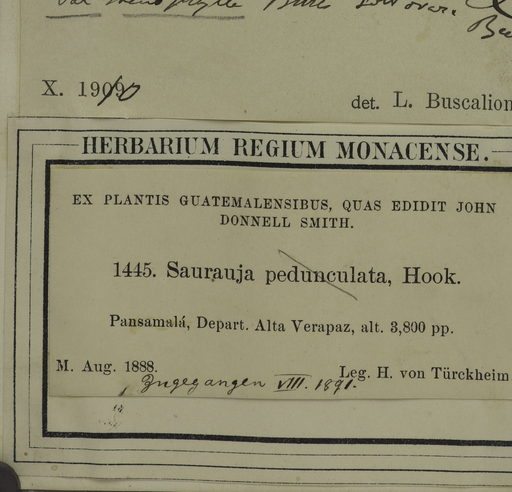 var
X. 1910
det. L. Buscalion
HERBARIUM REGIUM MONACENSE.
EX PLANTIS GUATEMALENSIBUS, QUAS EDIDIT JOHN
DONNELL SMITH.
1445. Saurauja pedunculata, Hook.
Pansamalá, Depart. Alta Verapaz, alt. 3,800 pp.
M. Aug. 1888. Leg. H. von Türckheim
Zugegangen VIII. 1891.